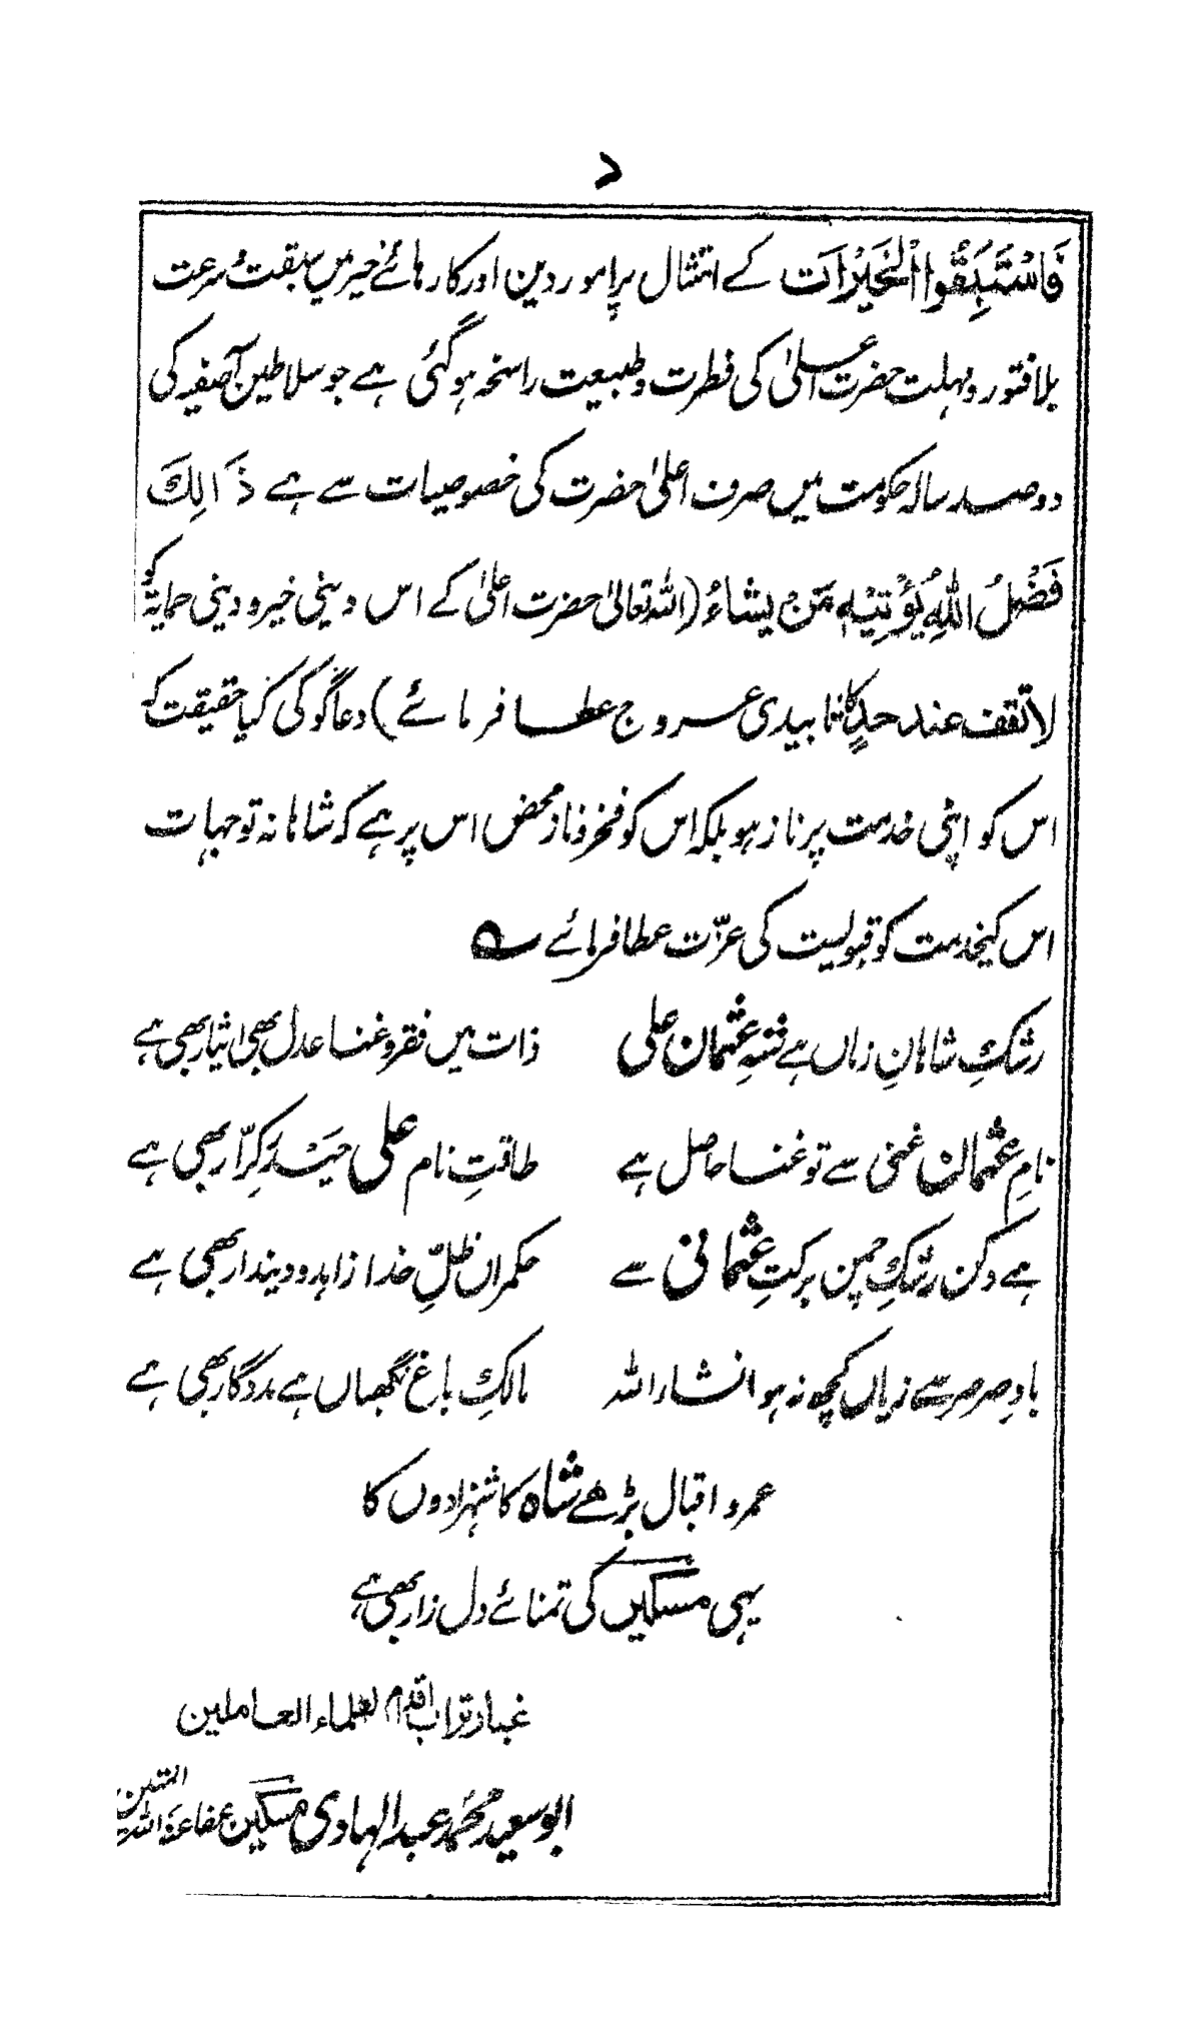 د
فَاسْتَبِقُوا الْخَيْرَات کے امتثال پر امور دین اور کارہائے خیر میں سبقت و سرعت
بلا فتور و مہلت حضرت اعلیٰ کی فطرت و طبیعت راسخہ ہو گئی ہے جو سلاطین آصفیہ کی
دو صد سالہ حکومت میں صرف اعلیٰ حضرت کی خصوصیات سے ہے ذَالِكَ
فَضْلُ اللّٰهِ يُؤْتِيْهِ مَنْ يشاءُ (اللہ تعالیٰ حضرت اعلیٰ کے اس دینی خیر و دینی حمایۃ کو
لا تقف عند حدٍ کا تابیدی عروج عطا فرمائے) دعاگو کی کیا حقیقت کہ
اس کو اپنی خدمت پر ناز ہو بلکہ اس کو فخر و ناز محض اس پر ہے کہ شاہانہ توجہات
اس کیخدمت کو قبولیت کی عزّت عطا فرمائے ؎
رشکِ شاہانِ زماں ہے شہِ عثمان علی ذات میں فقر و غنا عدل بھی ایثار بھی ہے
نامِ عثمان غنی سے تو غنا حاصل ہے طاقتِ نام علی حَیْدَرِ کرّار بھی ہے
ہے دکن رشکِ چمن برکتِ عثمانی سے حکمراں ظلِّ خدا زاہد و دیندار بھی ہے
بادِ صرصر سے زیاں کچھ نہ ہو انشاراللہ مالکِ باغ نگھباں ہے مددگار بھی ہے
عمر و اقبال بڑھے شاہ کا شہزادوں کا
یہی مسکیں کی تمنائے دل زار بھی ہے
غبار تراب اقدام العلماء العاملین
ابو سعید محمّد عبد الہادی مسکین عفا عنہ اللہ المتین